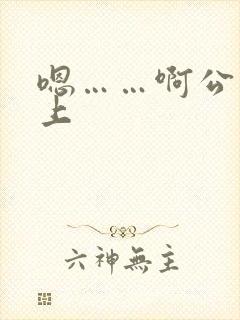 嗯……啊公
上
六神無主